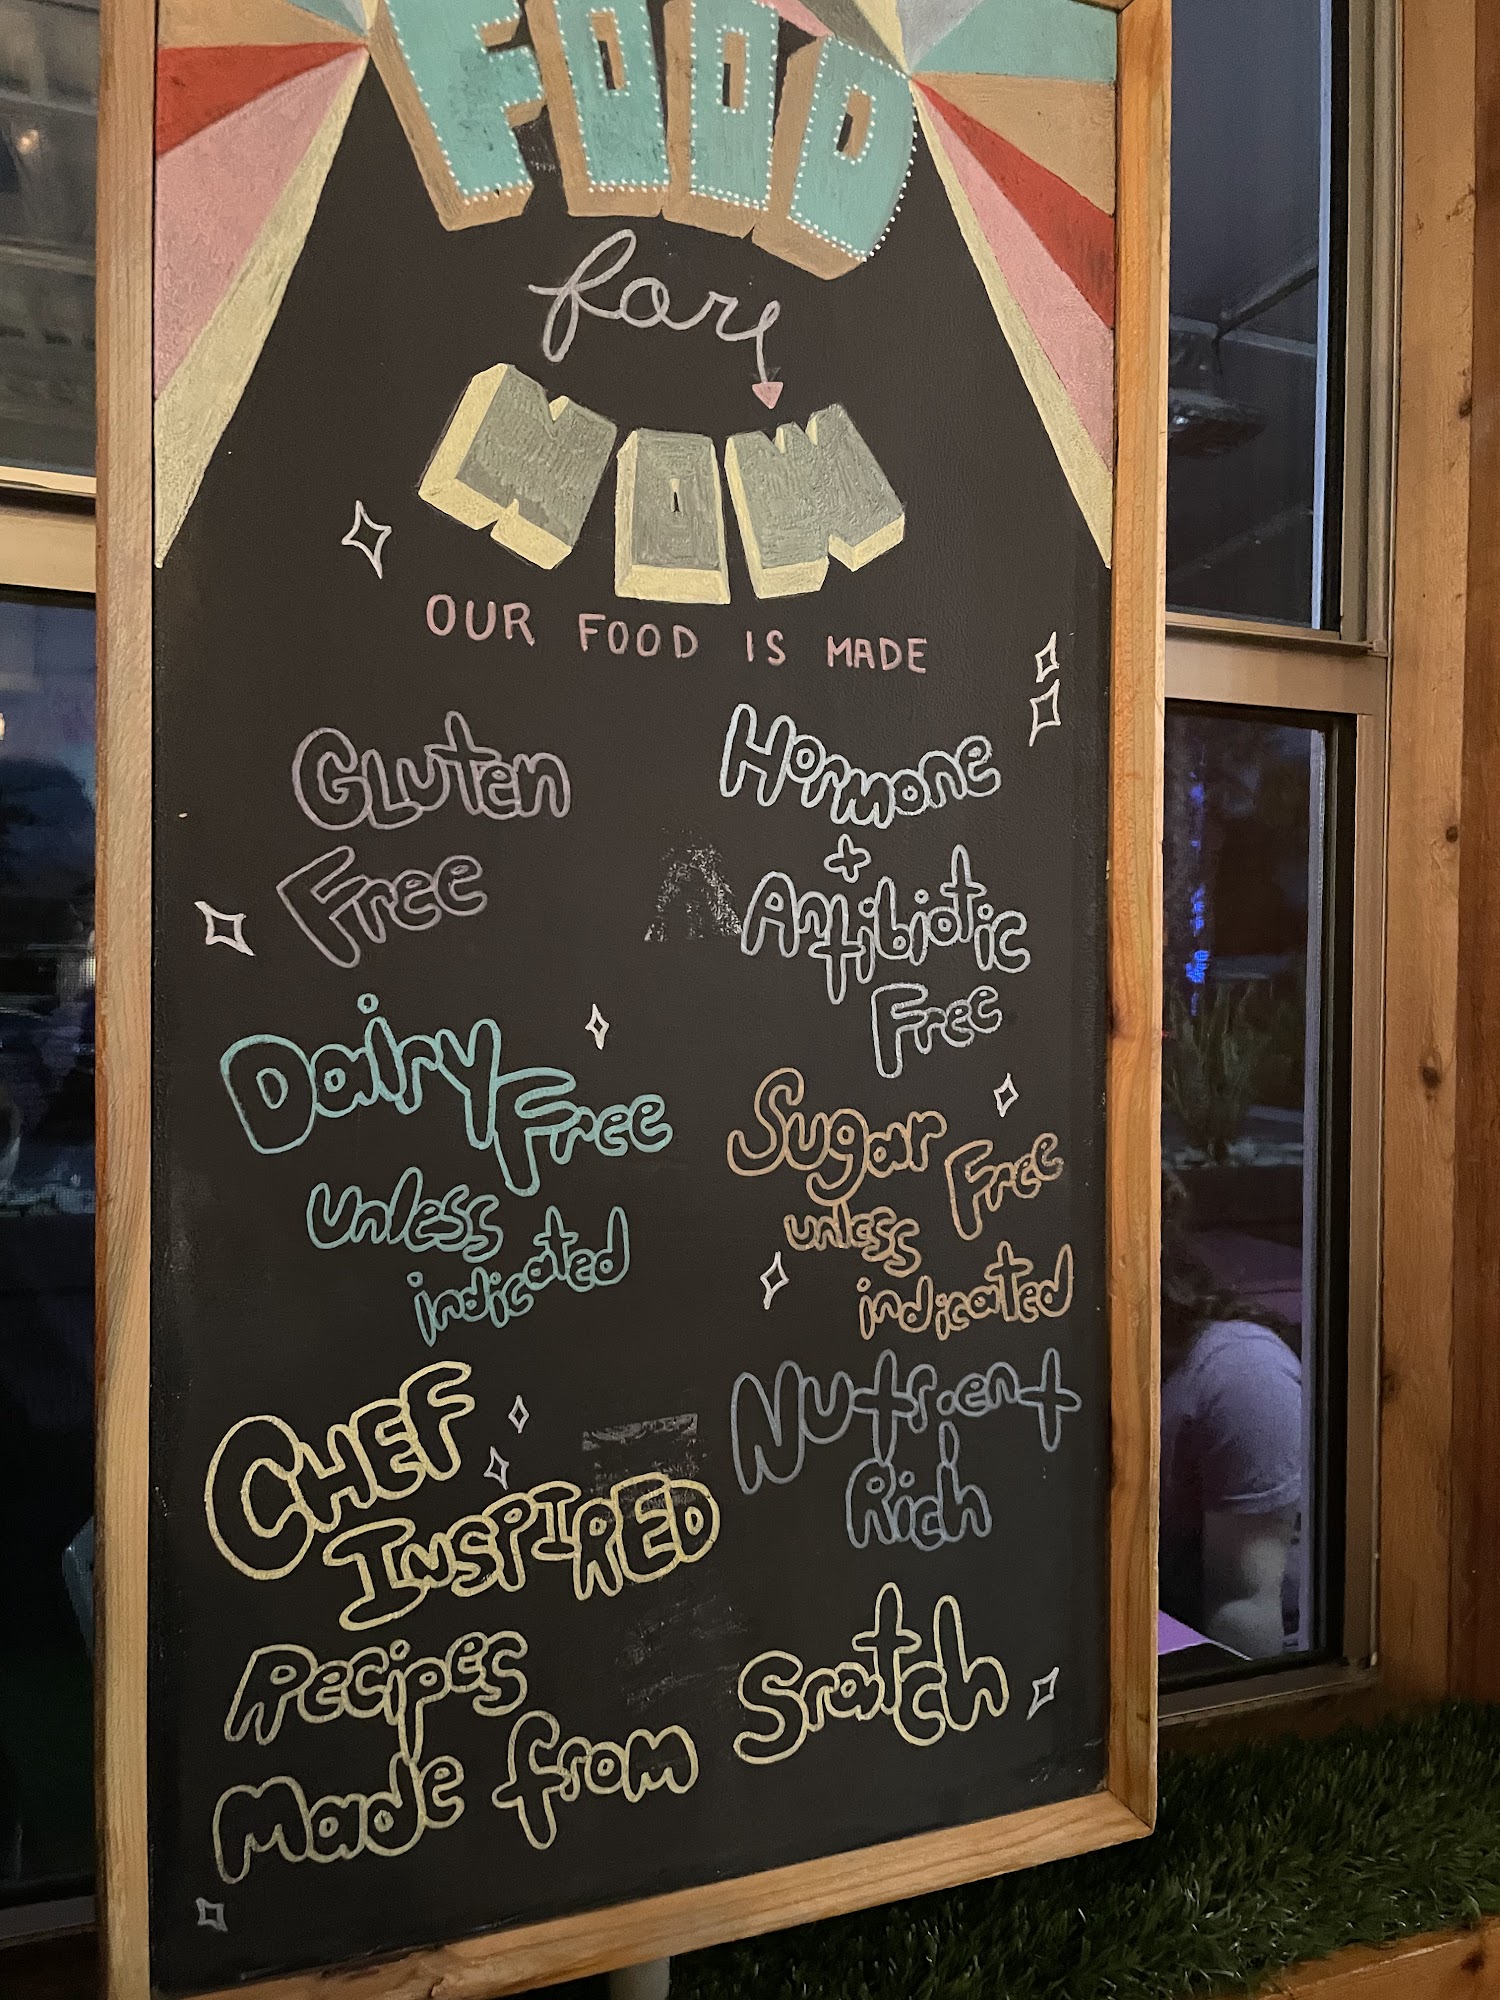 FOOD
for
NOW
OUR FOOD IS MADE
Gluten
Free
Dairy Free
unless
indicated
Hormone
+
Antibiotic
Free
Sugar Free
unless
indicated
CHEF
INSPIRED
Nutrient
Rich
Recipes
Made from Sratch